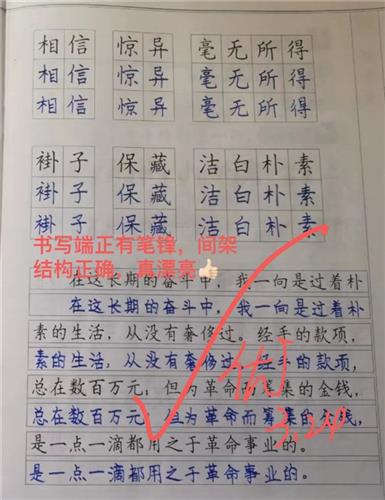 相信 惊异 毫无所得
相信 惊异 毫无所得
相信 惊异 毫无所得
褂子 保藏 洁白朴素
褂子 保藏 洁白朴素
褂子 保藏 洁白朴素
书写端正有笔锋，间架
结构正确，真漂亮👍🏻
在这长期的奋斗中，我一向是过着朴
在这长期的奋斗中，我一向是过着朴
素的生活，从没有奢侈过，经手的款项，
素的生活，从没有奢侈过，经手的款项，
总在数百万元，但为革命而筹集的金钱，
总在数百万元，但为革命而筹集的金钱，
是一点一滴都用之于革命事业的。
是一点一滴都用之于革命事业的。
优